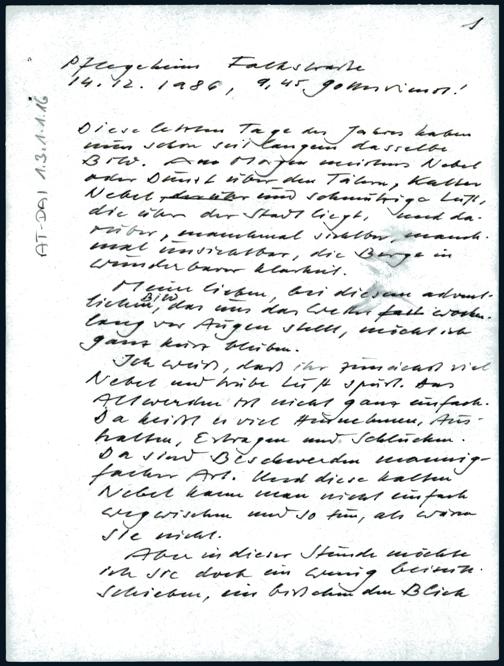 1
Pflegeheim Falkstraße
14.12.1986, 9,45, Gottesdienst!
AT-DAI 1.3.1.1.16
Diese letzten Tage des Jahres haben
nun schon seit langem dasselbe
Bild. Am Morgen meistens Nebel
oder Dunst über den Tälern, kalter
Nebel und schmutzige Luft,
die über der Stadt liegt, und da-
rüber, manchmal sichtbar, manch-
mal unsichtbar, die Berge in
wunderbarer Klarheit.
Meine Lieben, bei diesem advent-
lichen Bild, das uns das Wetter fast wochen-
lang vor Augen stellt, möcht ich
ganz kurz bleiben.
Ich weiß, daß ihr zunächst viel
Nebel und trübe Luft spürt. Das
Altwerden ist nicht ganz einfach.
Da heißt es viel Hinnehmen, Aus-
halten, Ertragen und Schlucken.
Da sind Beschwerden mannig-
facher Art. Und diese kalten
Nebel kann man nicht einfach
wegwischen und so tun, als wären
sie nicht.
Aber in dieser Stunde möchte
ich sie doch ein wenig beiseite
schieben, ein bißchen den Blick